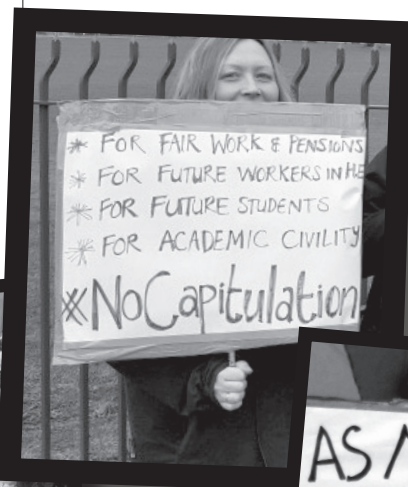 * FOR FAIR WORK & PENSIONS
* FOR FUTURE WORKERS IN HE
* FOR FUTURE STUDENTS
* FOR ACADEMIC CIVILITY
#NoCapitulation
AS